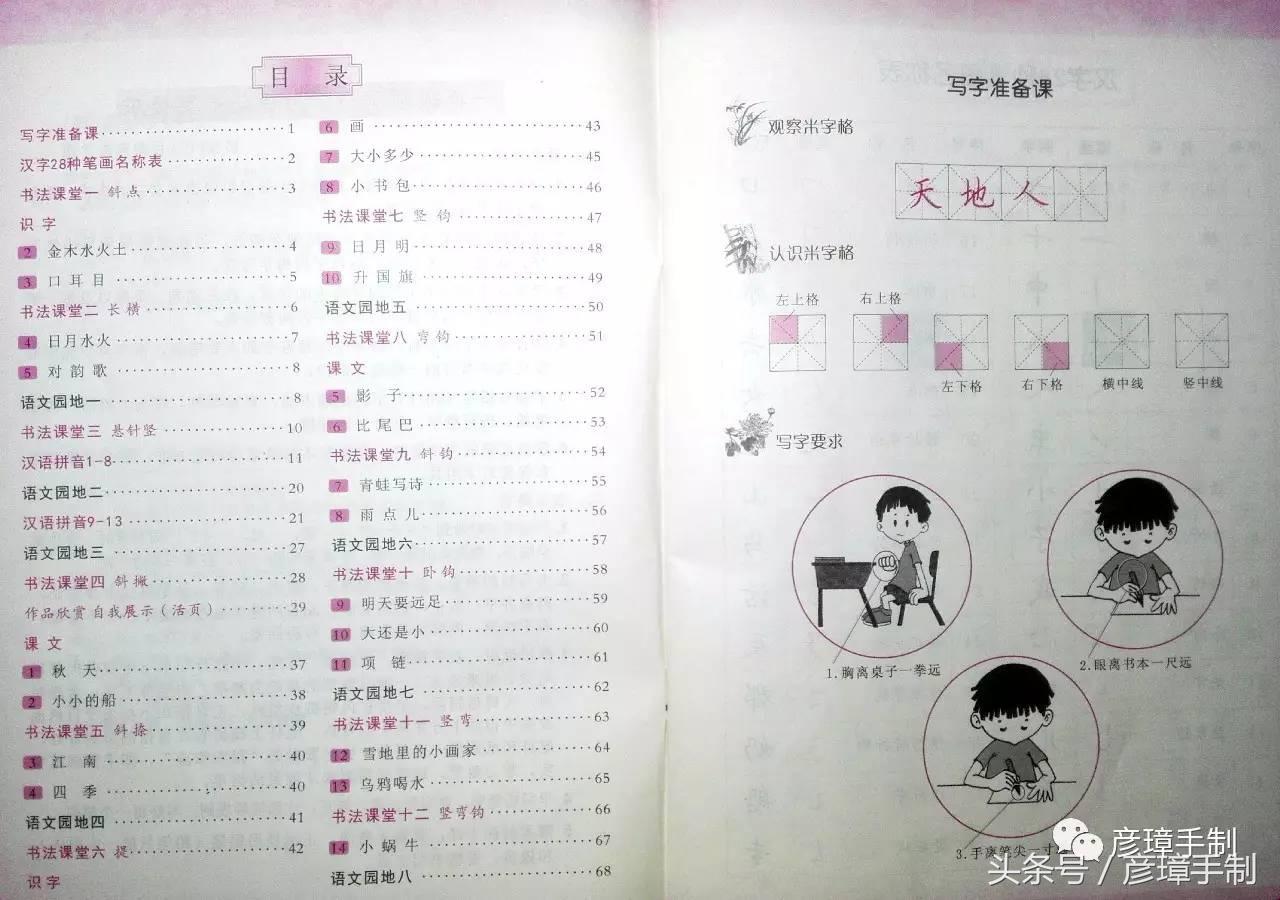 目 录
写字准备课 1
汉字28种笔画名称表 2
书法课堂一 斜点 3
识 字
2 金木水火土 4
3 口耳目 5
书法课堂二 长横 6
4 日月水火 7
5 对韵歌 8
语文园地一 8
书法课堂三 悬针竖 10
汉语拼音1-8 11
语文园地二 20
汉语拼音9-13 21
语文园地三 27
书法课堂四 斜撇 28
作品欣赏 自我展示(活页) 29
课 文
1 秋 天 37
2 小小的船 38
书法课堂五 斜捺 39
3 江 南 40
4 四 季 40
语文园地四 41
书法课堂六 提 42
识 字
6 画 43
7 大小多少 45
8 小书包 46
书法课堂七 竖钩 47
9 日月明 48
10 升国旗 49
语文园地五 50
书法课堂八 弯钩 51
课 文
5 影 子 52
6 比尾巴 53
书法课堂九 斜钩 54
7 青蛙写诗 55
8 雨点儿 56
语文园地六 57
书法课堂十 卧钩 58
9 明天要远足 59
10 大还是小 60
11 项 链 61
语文园地七 62
书法课堂十一 竖弯 63
12 雪地里的小画家 64
13 乌鸦喝水 65
书法课堂十二 竖弯钩 66
14 小蜗牛 67
语文园地八 68
写字准备课
观察米字格
天地人
认识米字格
左上格 右上格
左下格 右下格 横中线 竖中线
写字要求
1.胸离桌子一拳远
2.眼离书本一尺远
3.手离笔尖一寸
彦璋手制
头条号/彦璋手制